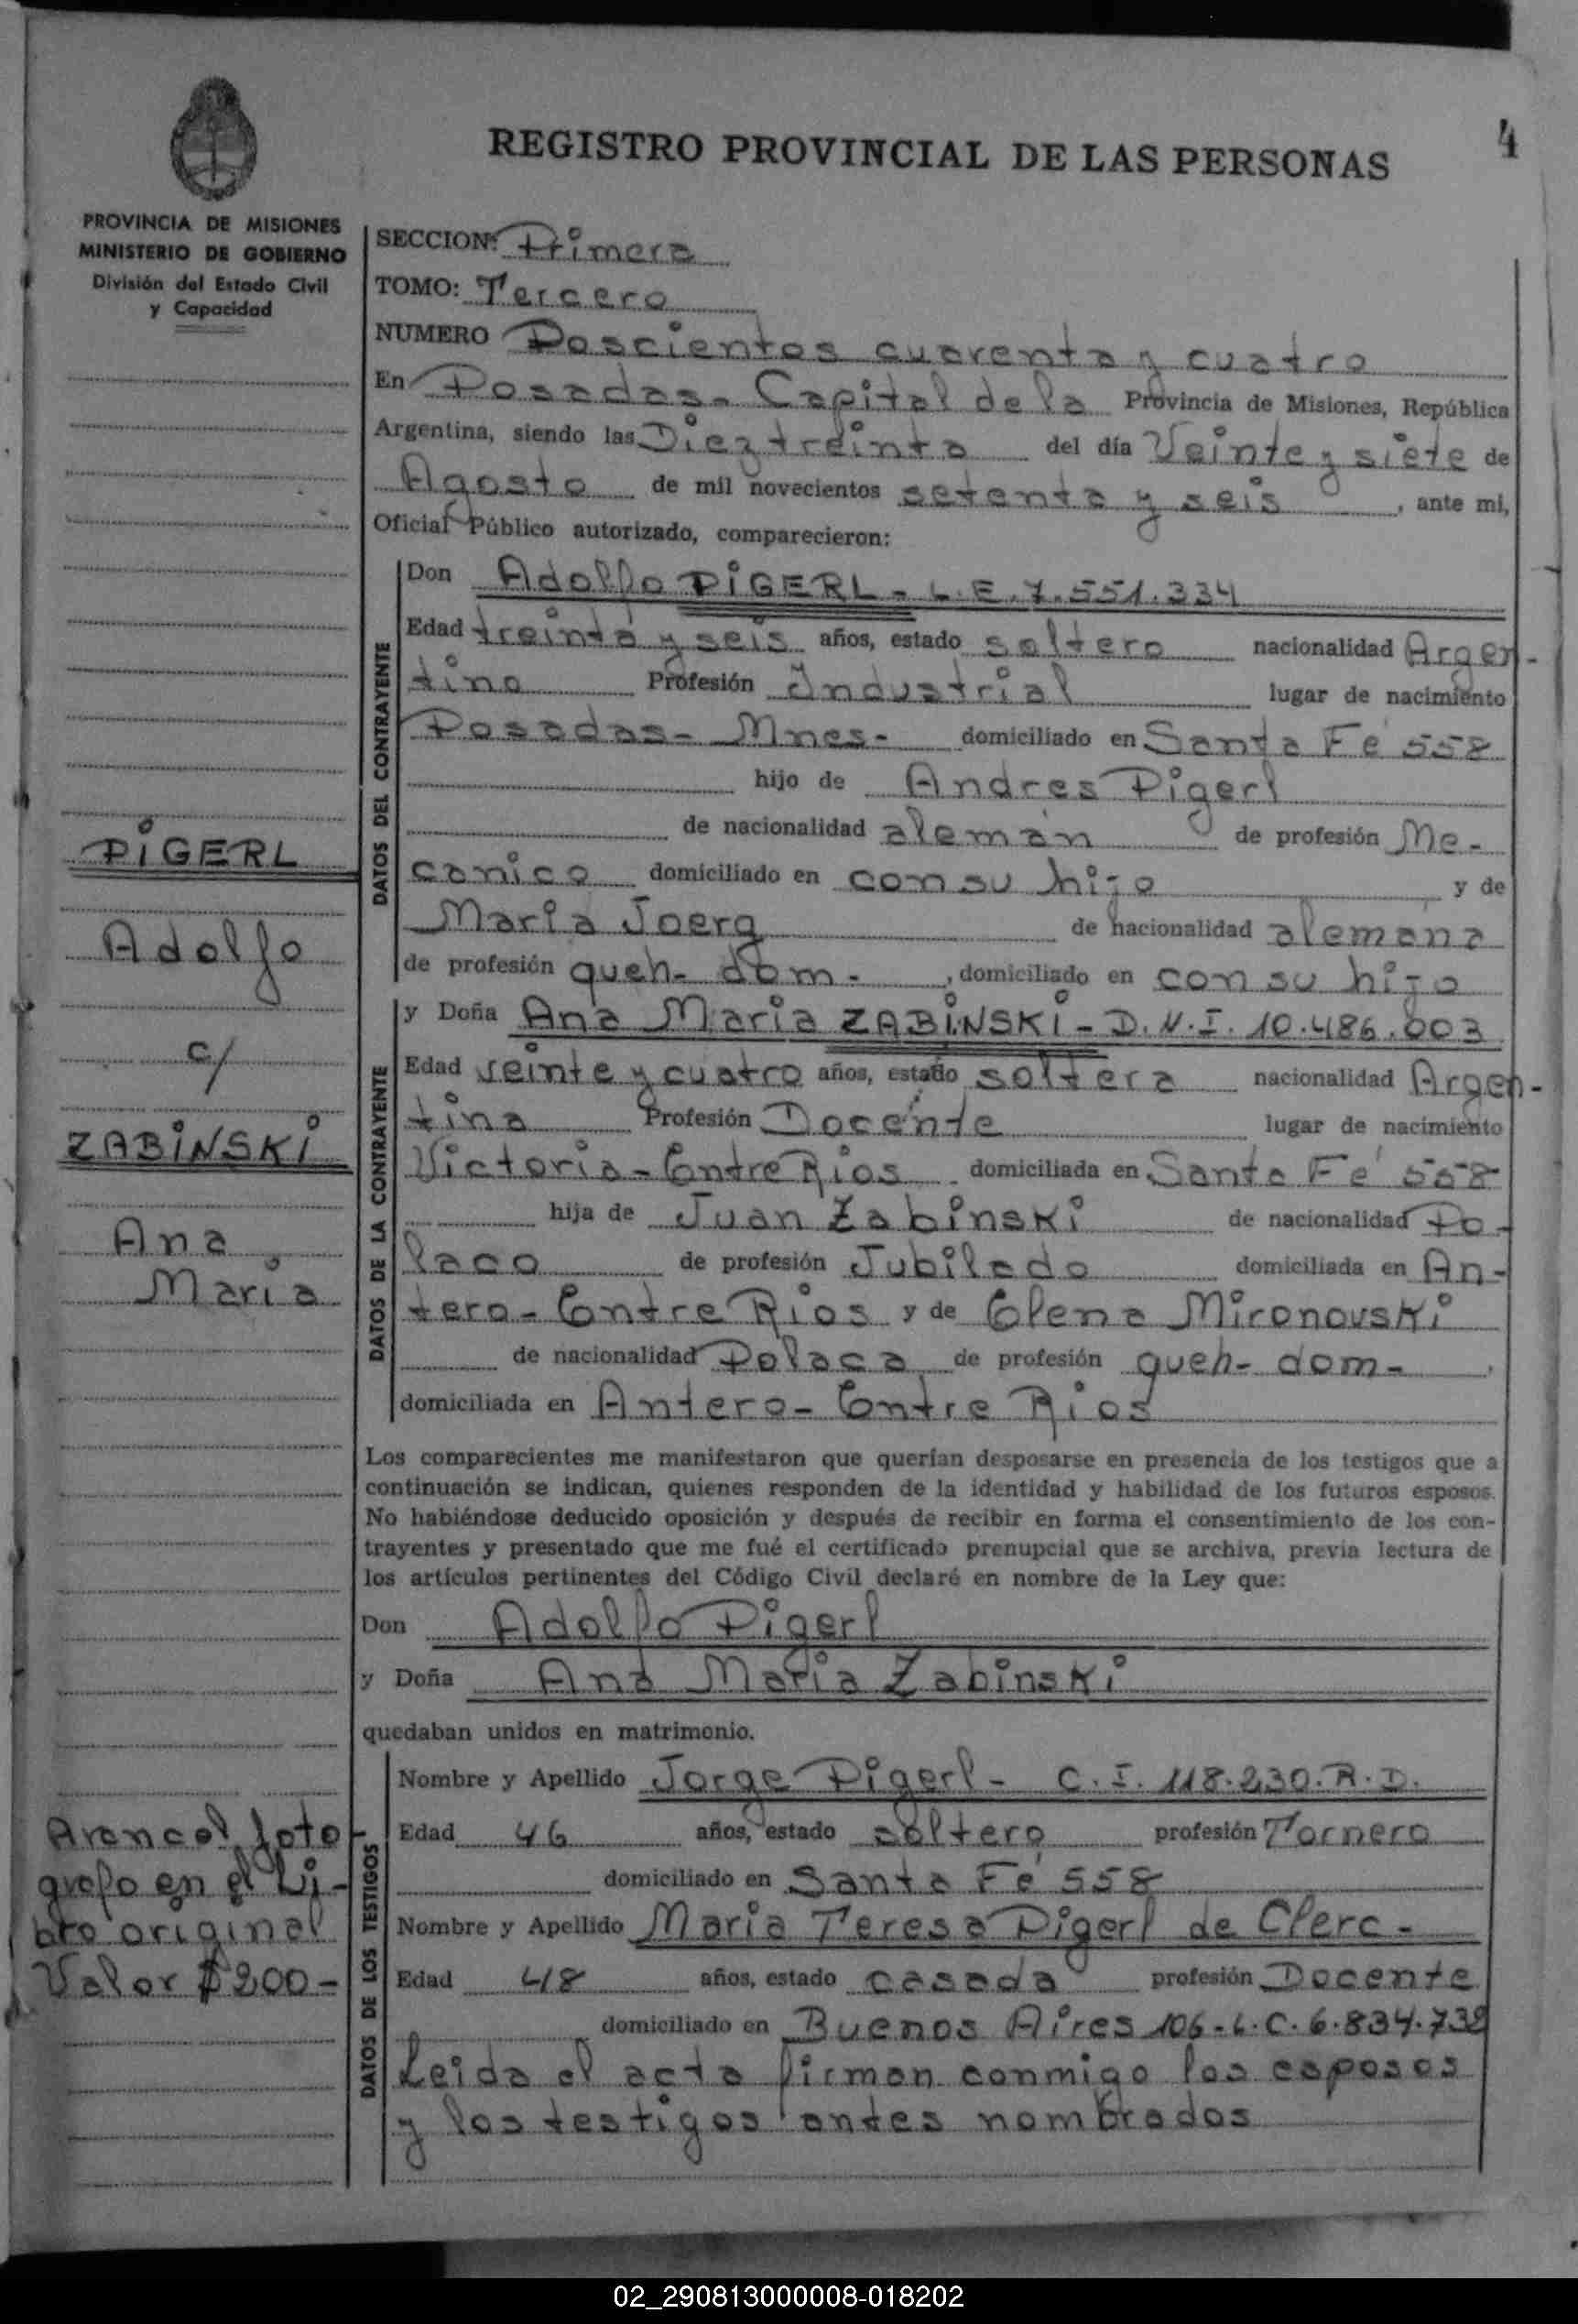 4
REGISTRO PROVINCIAL DE LAS PERSONAS
PROVINCIA DE MISIONES
MINISTERIO DE GOBIERNO
División del Estado Civil
y Capacidad
SECCION: Primera
TOMO: Tercero
NUMERO Doscientos cuarenta y cuatro
En Posadas - Capital de la Provincia de Misiones, República
Argentina, siendo las Diez treinta del día Veinte y siete de
Agosto de mil novecientos setenta y seis, ante mi,
Oficial Público autorizado, comparecieron:
DATOS DEL CONTRAYENTE
Don Adolfo PIGERL - L.E. 7.551.334
Edad treinta y seis años, estado soltero nacionalidad Argen-
tino Profesión Industrial lugar de nacimiento
Posadas - Mnes - domiciliado en Santa Fé 558
hijo de Andres Pigerl
de nacionalidad alemán de profesión Me-
canico domiciliado en con su hijo y de
Maria Joerg de nacionalidad alemana
de profesión queh- dom-, domiciliado en con su hijo
DATOS DE LA CONTRAYENTE
y Doña Ana Maria ZABINSKI - D.N.I. 10.486.003
Edad veinte y cuatro años, estado soltera nacionalidad Argen-
tina Profesión Docente lugar de nacimiento
Victoria - Entre Rios domiciliada en Santa Fé 558
hija de Juan Zabinski de nacionalidad Po-
laco de profesión Jubilado domiciliada en An-
tero - Entre Rios y de Elena Mironovski
de nacionalidad Polaca de profesión queh- dom-,
domiciliada en Antero - Entre Rios
Los comparecientes me manifestaron que querían desposarse en presencia de los testigos que a
continuación se indican, quienes responden de la identidad y habilidad de los futuros esposos.
No habiéndose deducido oposición y después de recibir en forma el consentimiento de los con-
trayentes y presentado que me fué el certificado prenupcial que se archiva, previa lectura de
los artículos pertinentes del Código Civil declaré en nombre de la Ley que:
Don Adolfo Pigerl
y Doña Ana Maria Zabinski
quedaban unidos en matrimonio.
DATOS DE LOS TESTIGOS
Nombre y Apellido Jorge Pigerl - C.I. 118.230.R.D.
Edad 46 años, estado soltero profesión Tornero
domiciliado en Santa Fé 558
Nombre y Apellido Maria Teresa Pigerl de Clerc -
Edad 48 años, estado casada profesión Docente
domiciliado en Buenos Aires 106 - L.C. 6.834.732
Leida el acta firman conmigo los esposos
y los testigos antes nombrados
PIGERL
Adolfo
c/
ZABINSKI
Ana
Maria
Arancel foto
grafo en el Li-
bro original
Valor $200-
02_290813000008-018202